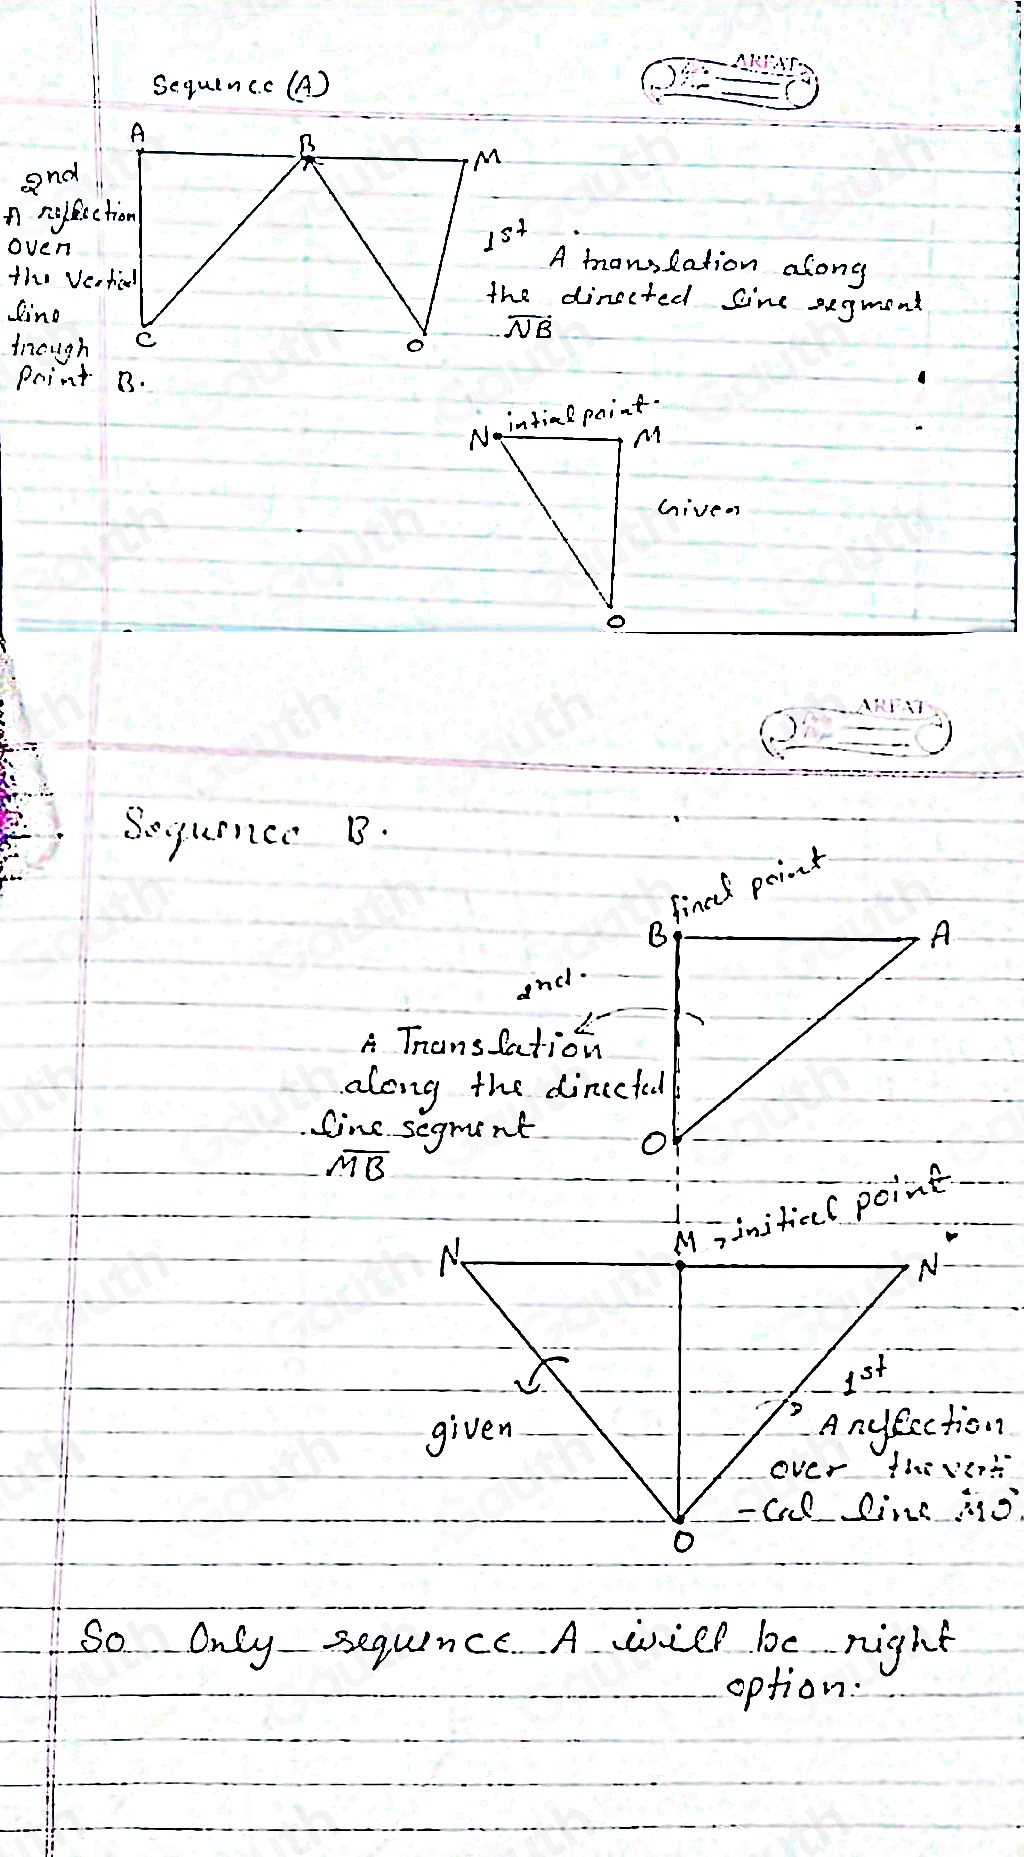 Sequence (A)
ARFAT
A
B
M
2nd
A reflection
over
the Vertical
line
trough
Point B.
C
O
1st
A translation along
the directed line segment
NB
N
intial point.
M
Given
O
ARFAT
Sequence B.
final point
B
A
2nd.
A Translation
along the directed
line segment
MB
O
M
initial point
N
N'
given
1st
A reflection
over the verti
-cal line MO.
O
So Only sequence A will be right
option.
Gauth